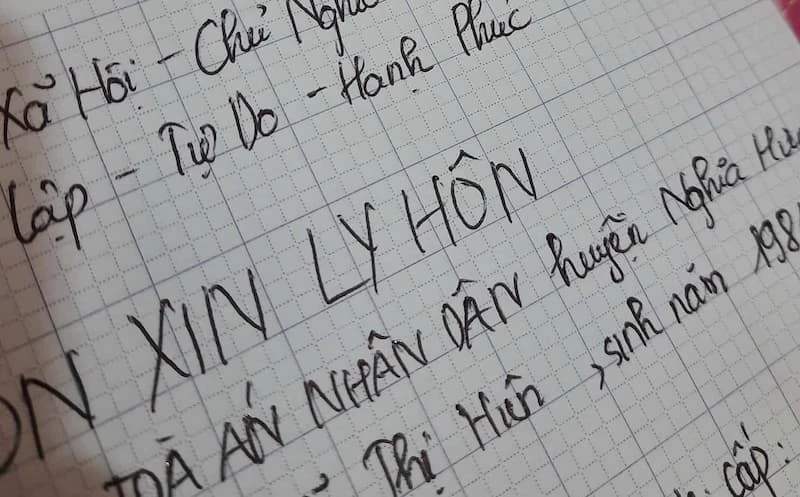 Xã Hội - Chủ Nghĩa
Lập - Tự Do - Hạnh Phúc
ƠN XIN LY HÔN
TOÀ ÁN NHÂN DÂN huyện Nghĩa Hư
Thị Hiền, sinh năm 198
cấp: